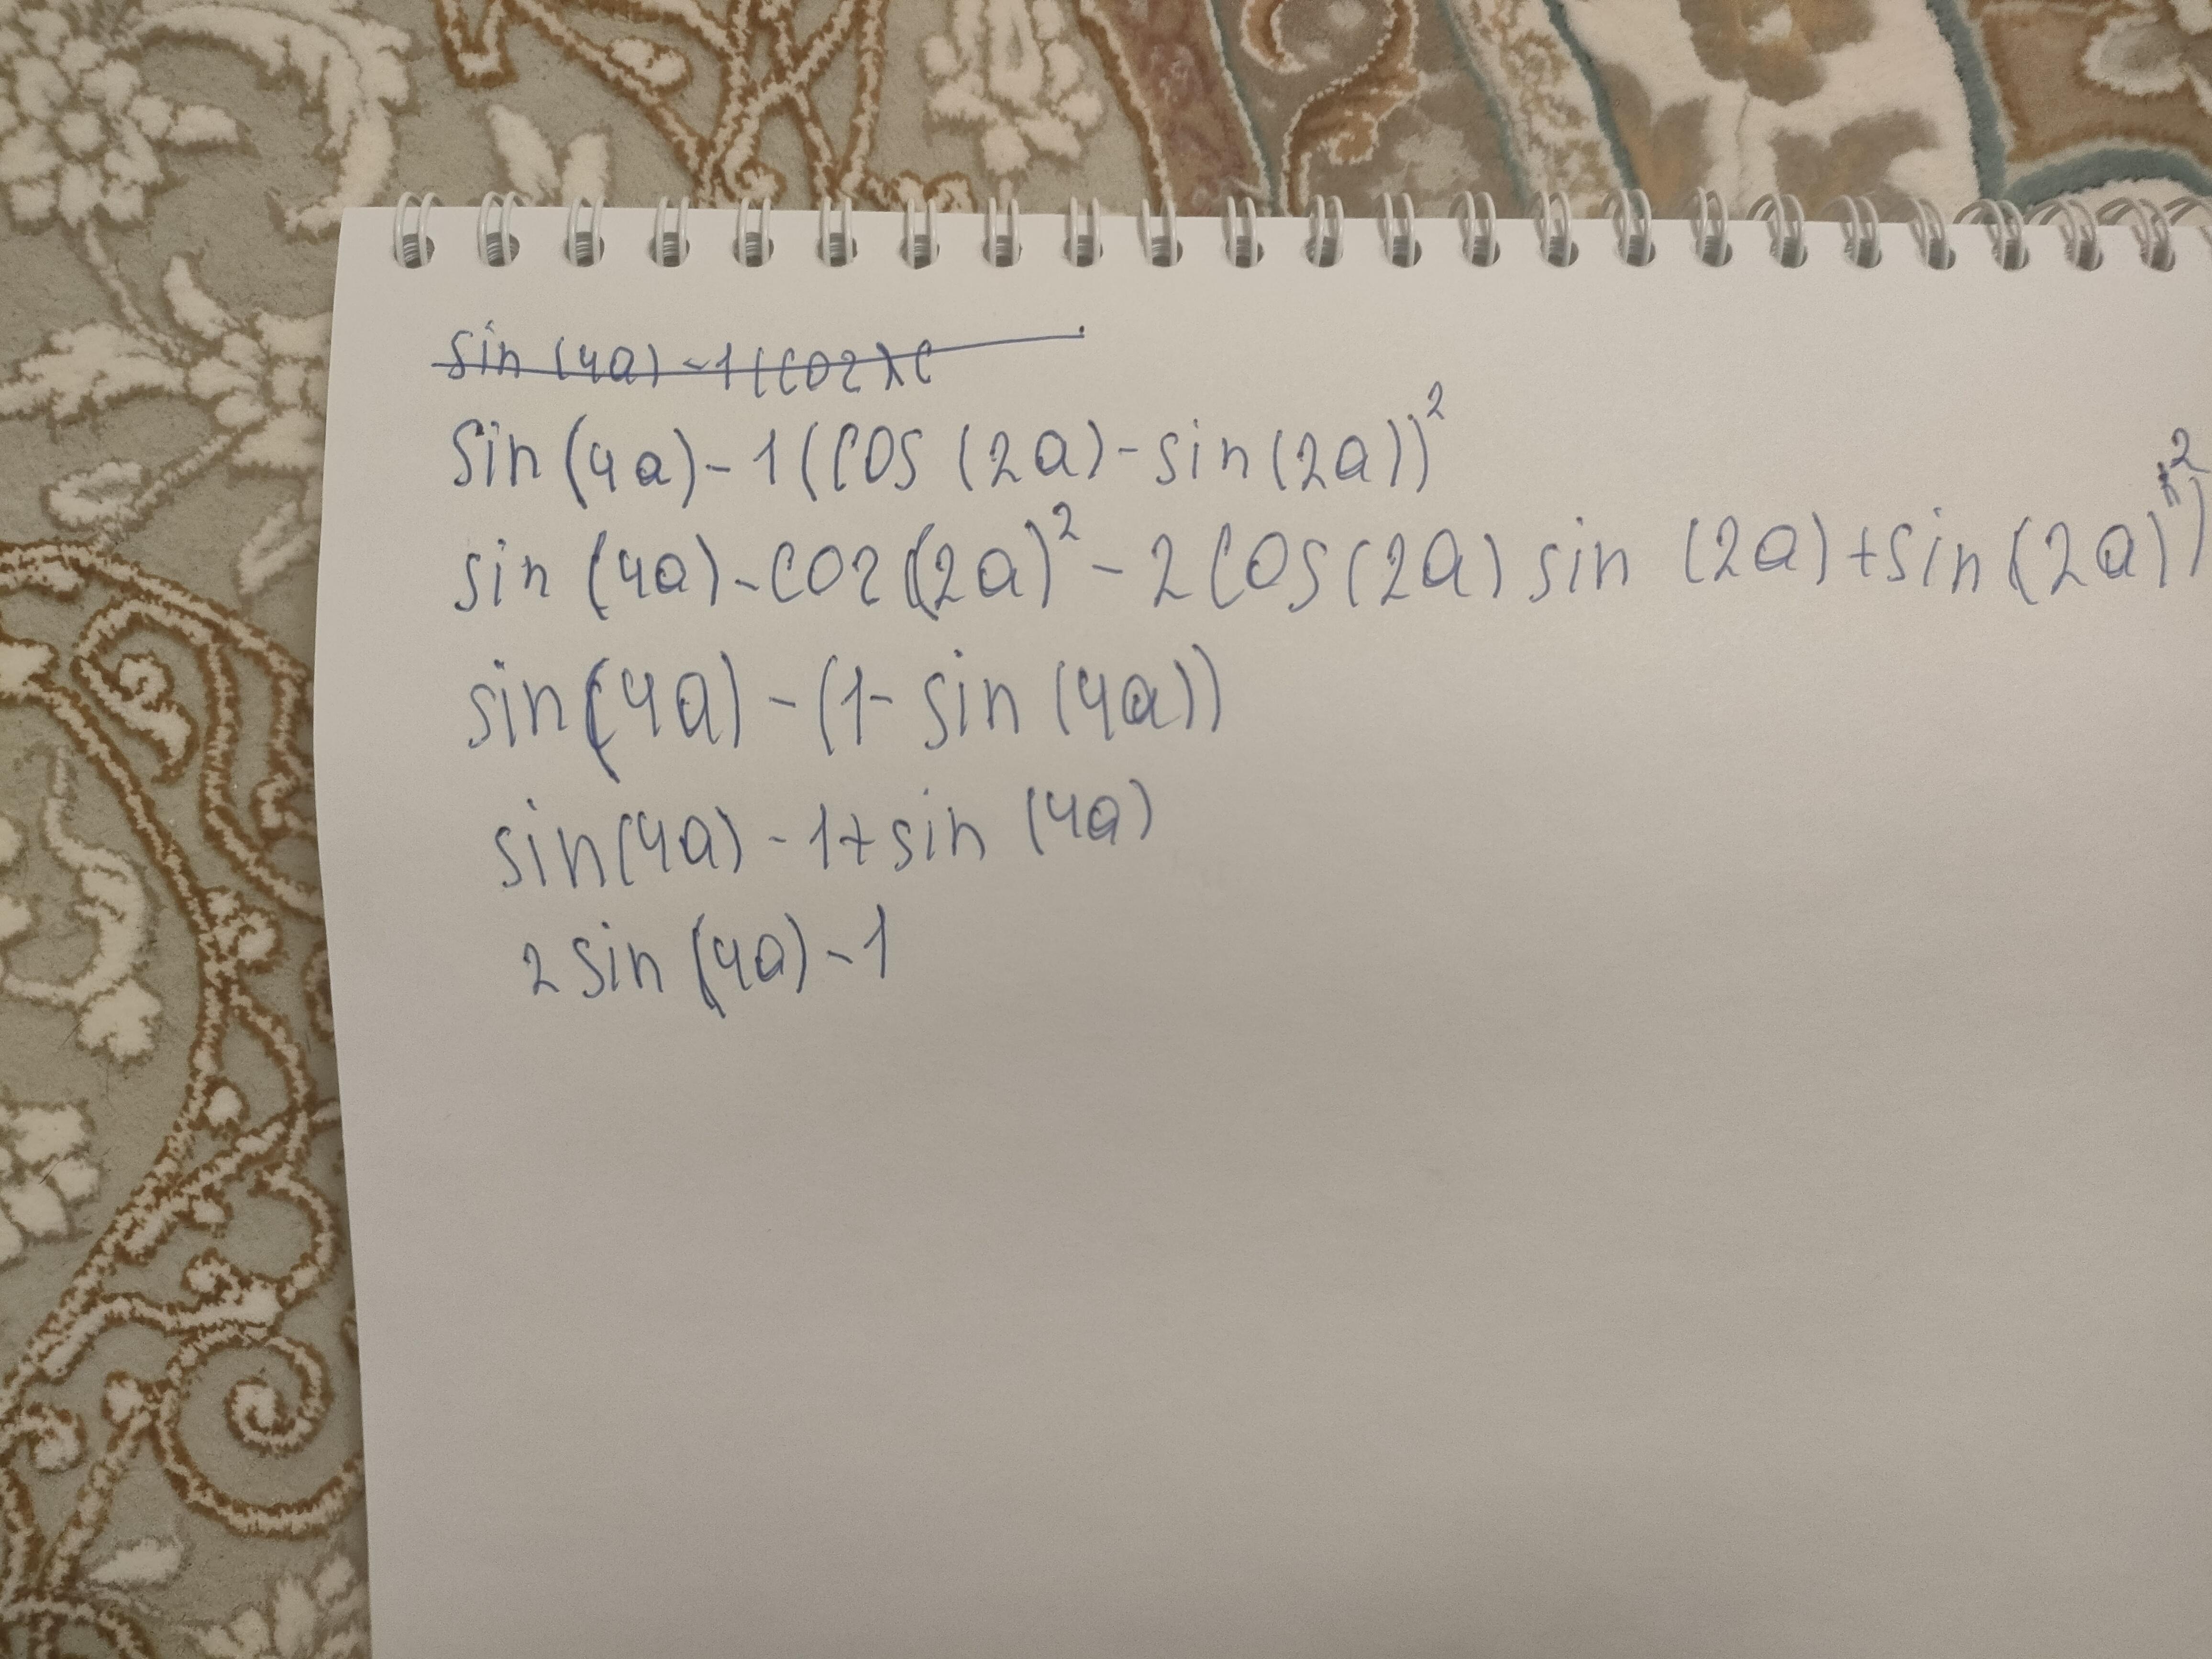 sin (4a) - 1 (COZ) C
Sin (4a) - 1 (COS (2a) - sin (2a))²
sin (4a) - COZ (2a)² - 2 COS (2a) sin (2a) + sin (2a)²)
sin (4a) - (1 - sin (4a))
sin (4a) - 1 + sin (4a)
2 sin (4a) - 1